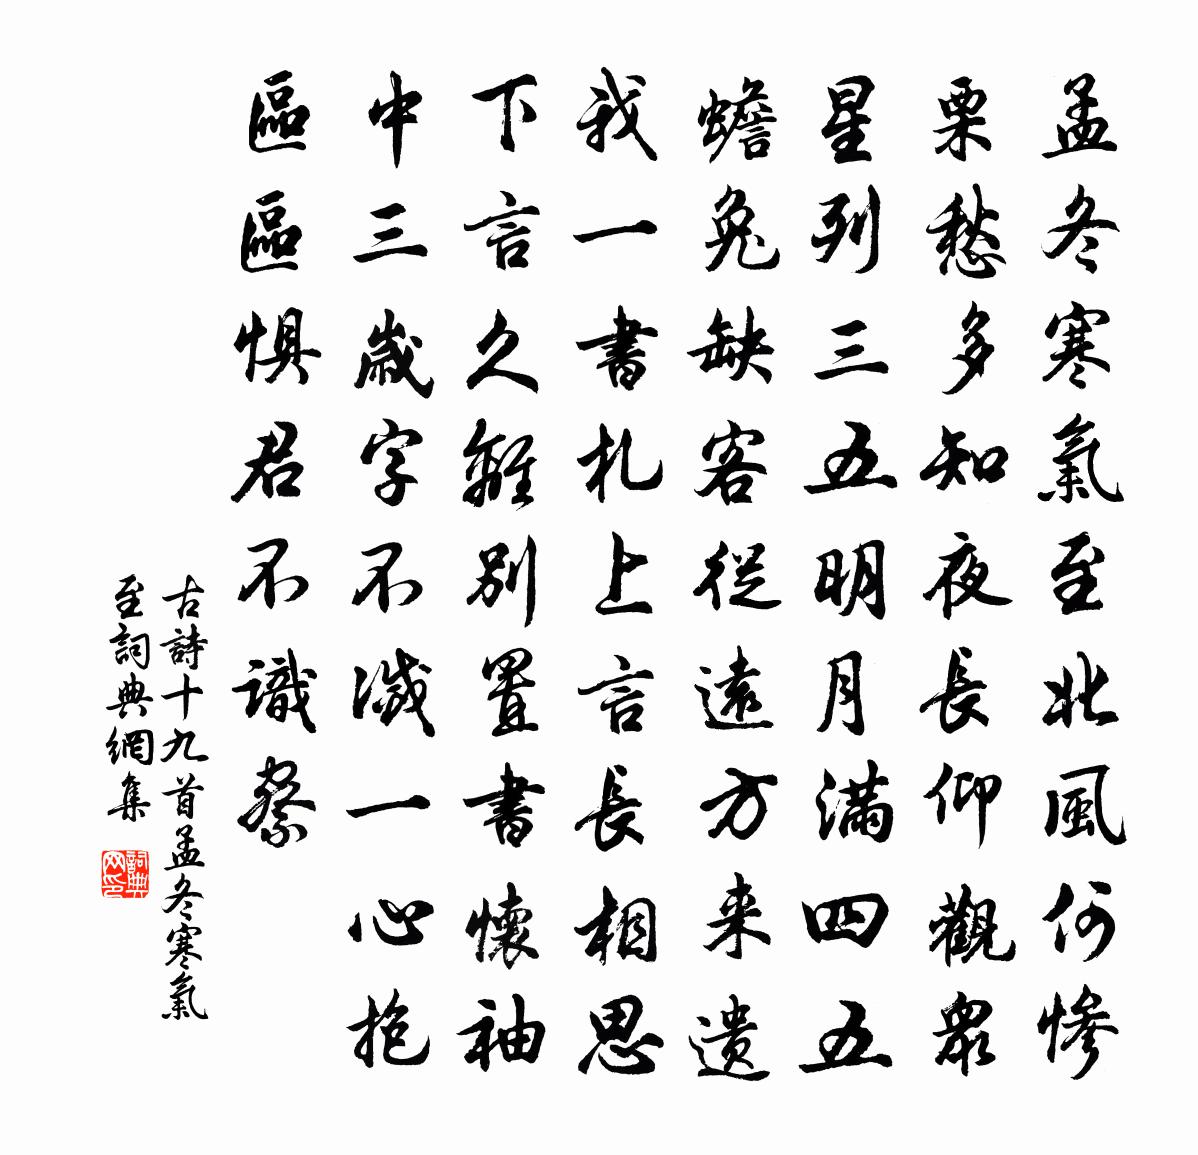 孟冬寒氣至北風何慘
栗愁多知夜長仰觀眾
星列三五明月滿四五
蟾兔缺客從遠方来遺
我一書札上言長相思
下言久離別置書懷袖
中三歲字不滅一心抱
區區懼君不識察
古詩十九首孟冬寒氣
至詞典網集
詞典
网印